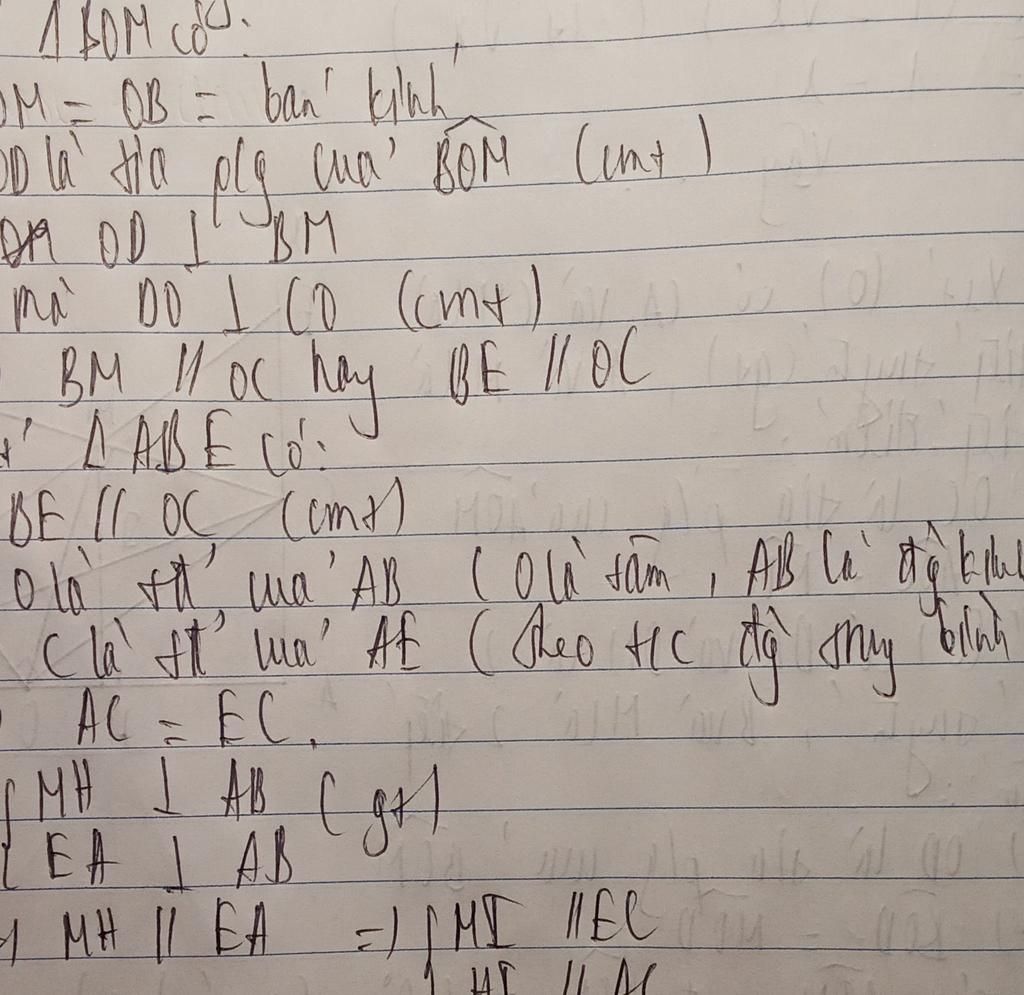 Δ BOM có:
OM = OB = bán kính
OD là tia p/g của BOM (cmt)
OD ⊥ BM
mà DO ⊥ CO (cmt)
BM // OC hay BE // OC
Δ ABE có:
BE // OC (cmt)
O là tđ của AB ( O là tâm, AB là đg kính
C là tđ của AE ( theo t/c đg trug bình
AC = EC.
MH ⊥ AB ( gt)
EA ⊥ AB
MH // EA => MI // EC
HI // AC